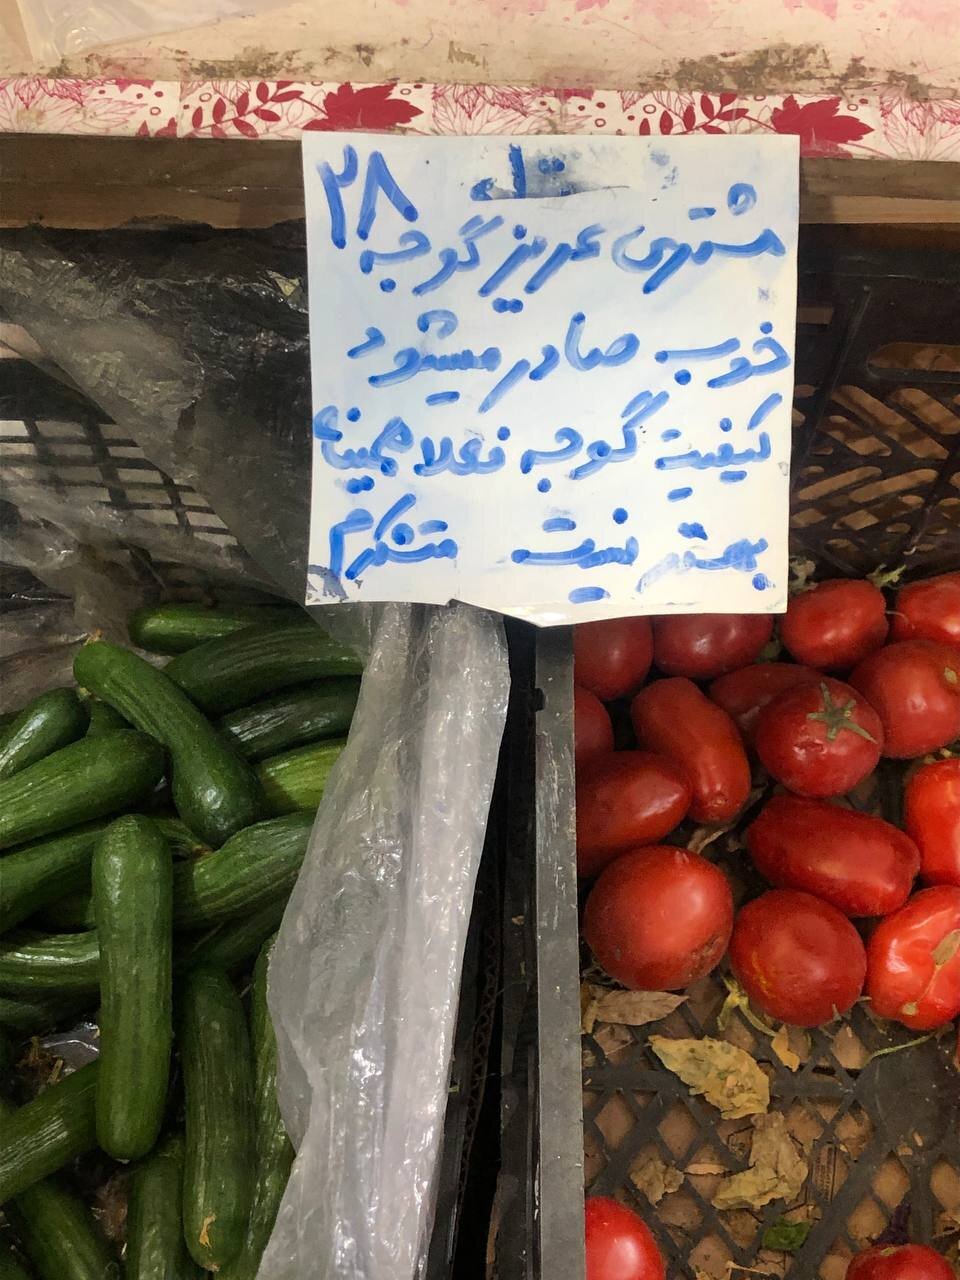 ۲۸
مشتری عزیز گوجه
خوب صادر میشود
کیفیت گوجه فعلا همینه
بهتر نیست متشکرم